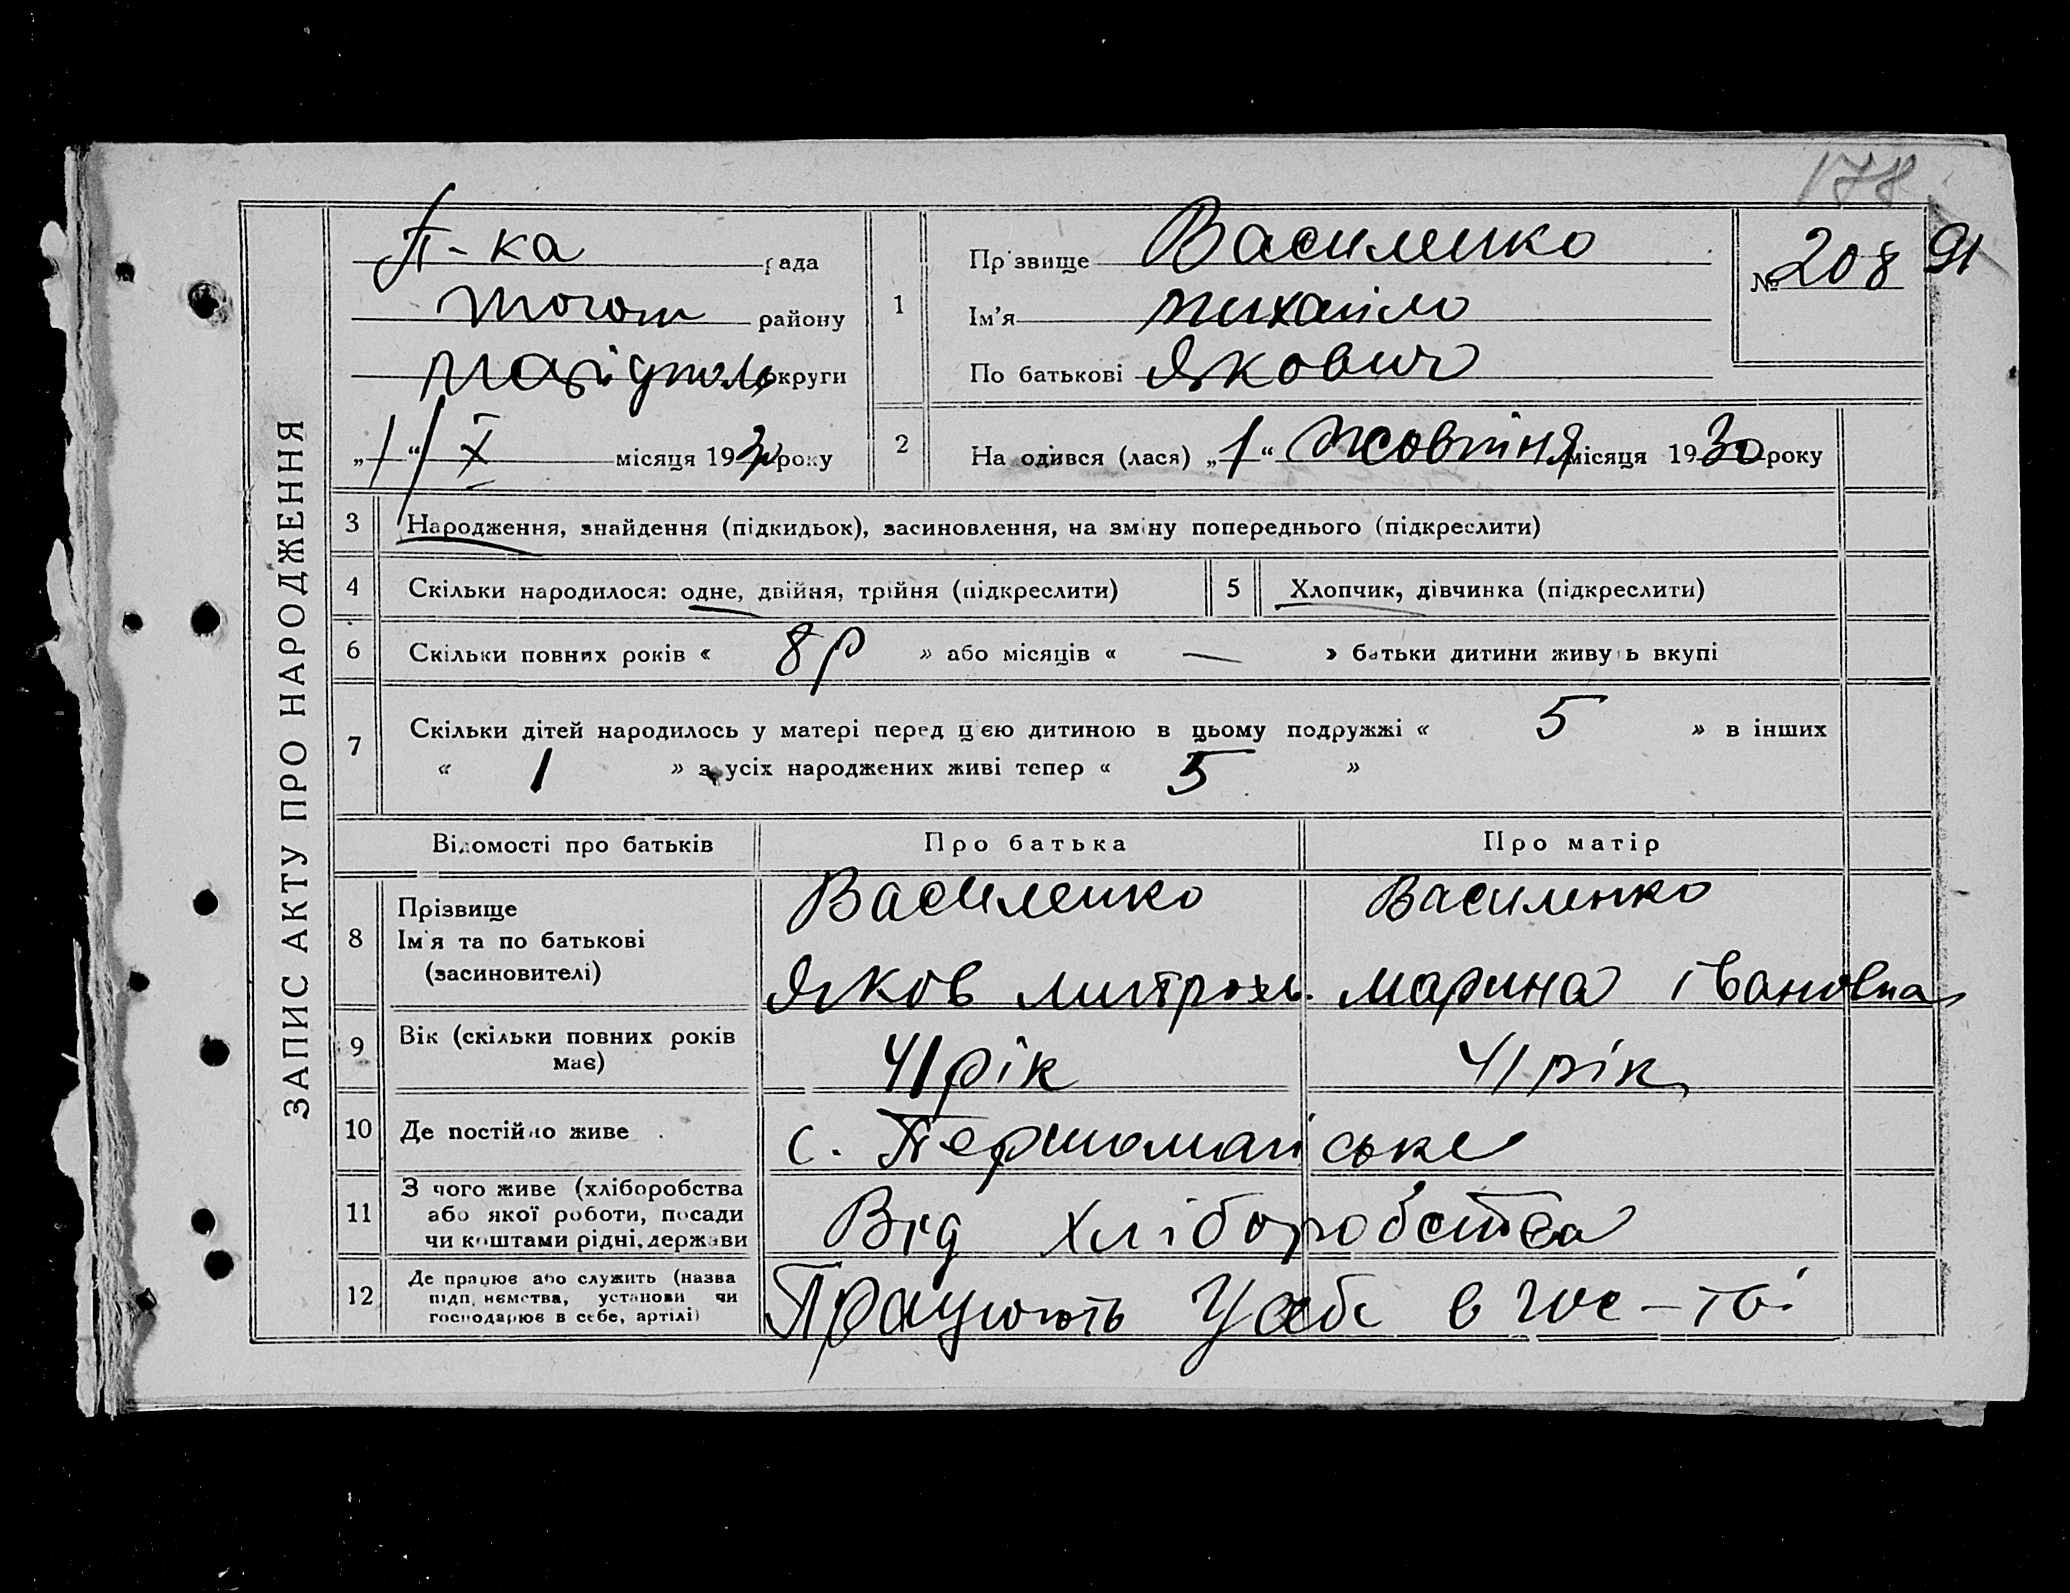 178
ЗАПИС АКТУ ПРО НАРОДЖЕННЯ
П-ка рада
району
Маріуполь округи
„1“ X місяця 1930 року
1 Прізвище Василенко
Ім'я Михайло
По батькові Якович
№ 208 91
2 Народився (лася) „1“ Жовтня місяця 1930 року
3 Народження, знайдення (підкидьок), засиновлення, на зміну попереднього (підкреслити)
4 Скільки народилося: одне, двійня, трійня (підкреслити) 5 Хлопчик, дівчинка (підкреслити)
6 Скільки повних років « 8 р » або місяців « — » батьки дитини живуть вкупі
7 Скільки дітей народилось у матері перед цією дитиною в цьому подружжі « 5 » в інших
« 1 » з усіх народжених живі тепер « 5 »
Відомості про батьків Про батька Про матір
8 Прізвище Василенко Василенко
Ім'я та по батькові
(засиновителі) Яков Митрох. Марина Івановна
9 Вік (скільки повних років має) 41 рік 41 рік
10 Де постійно живе с. Першомайське
11 З чого живе (хліборобства
або якої роботи, посади
чи коштами рідні, держави Від хліборобства
12 Де працює або служить (назва
підприємства, установи чи
господарює в себе, артілі) Працюють У себе в гос-ті